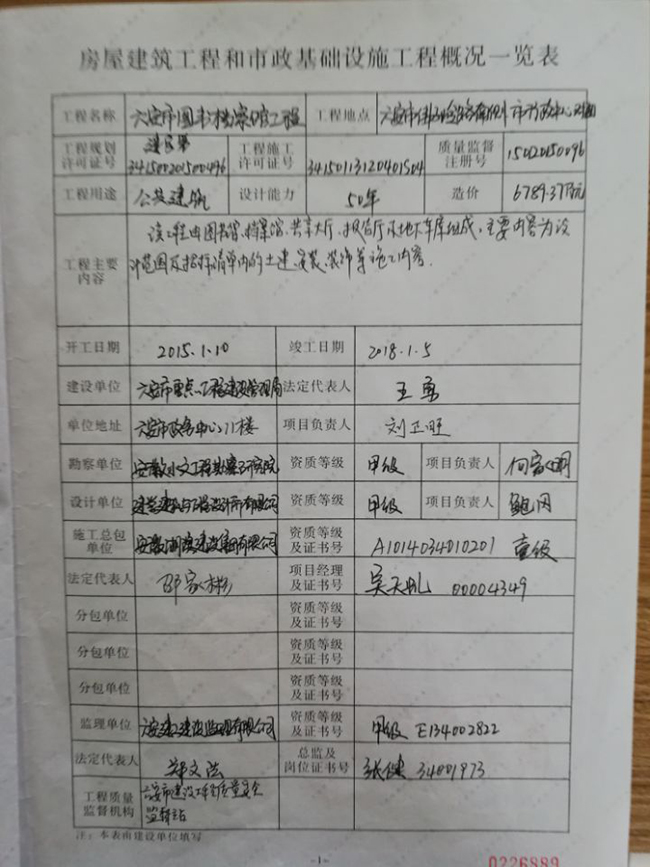 房屋建筑工程和市政基础设施工程概况一览表
工程名称 六安市图书档案馆工程 工程地点 六安市 市行政中心
工程规划许可证号 建字第 341500201500496 工程施工许可证号 34150113120401S04 质量监督注册号 15020150096
工程用途 公共建筑 设计能力 50年 造价 6789.37万元
工程主要内容 该工程由图书馆、档案馆、共享大厅、报告厅及地下车库组成,主要内容为设
计范围及招标清单内的土建、安装、装饰等施工内容.
开工日期 2015.1.10 竣工日期 2018.1.5
建设单位 六安市重点工程建设管理局 法定代表人 王勇
单位地址 六安市政务中心11楼 项目负责人 刘正旺
勘察单位 安徽水文工程勘察研究院 资质等级 甲级 项目负责人 何家
设计单位 有限公司 资质等级 甲级 项目负责人 鲍冈
施工总包单位 安徽 建设集团有限公司 资质等级及证书号 A1014034010201 壹级
法定代表人 邵家彬 项目经理及证书号 吴天 00004349
分包单位 资质等级及证书号
分包单位 资质等级及证书号
分包单位 资质等级及证书号
监理单位 六安 建设监理有限公司 资质等级及证书号 甲级 E134002822
法定代表人 郑文法 总监及岗位证书号 张健 34001973
工程质量监督机构 六安市建设工程质量安全
监督站
注:本表由建设单位填写
-1-
0226889